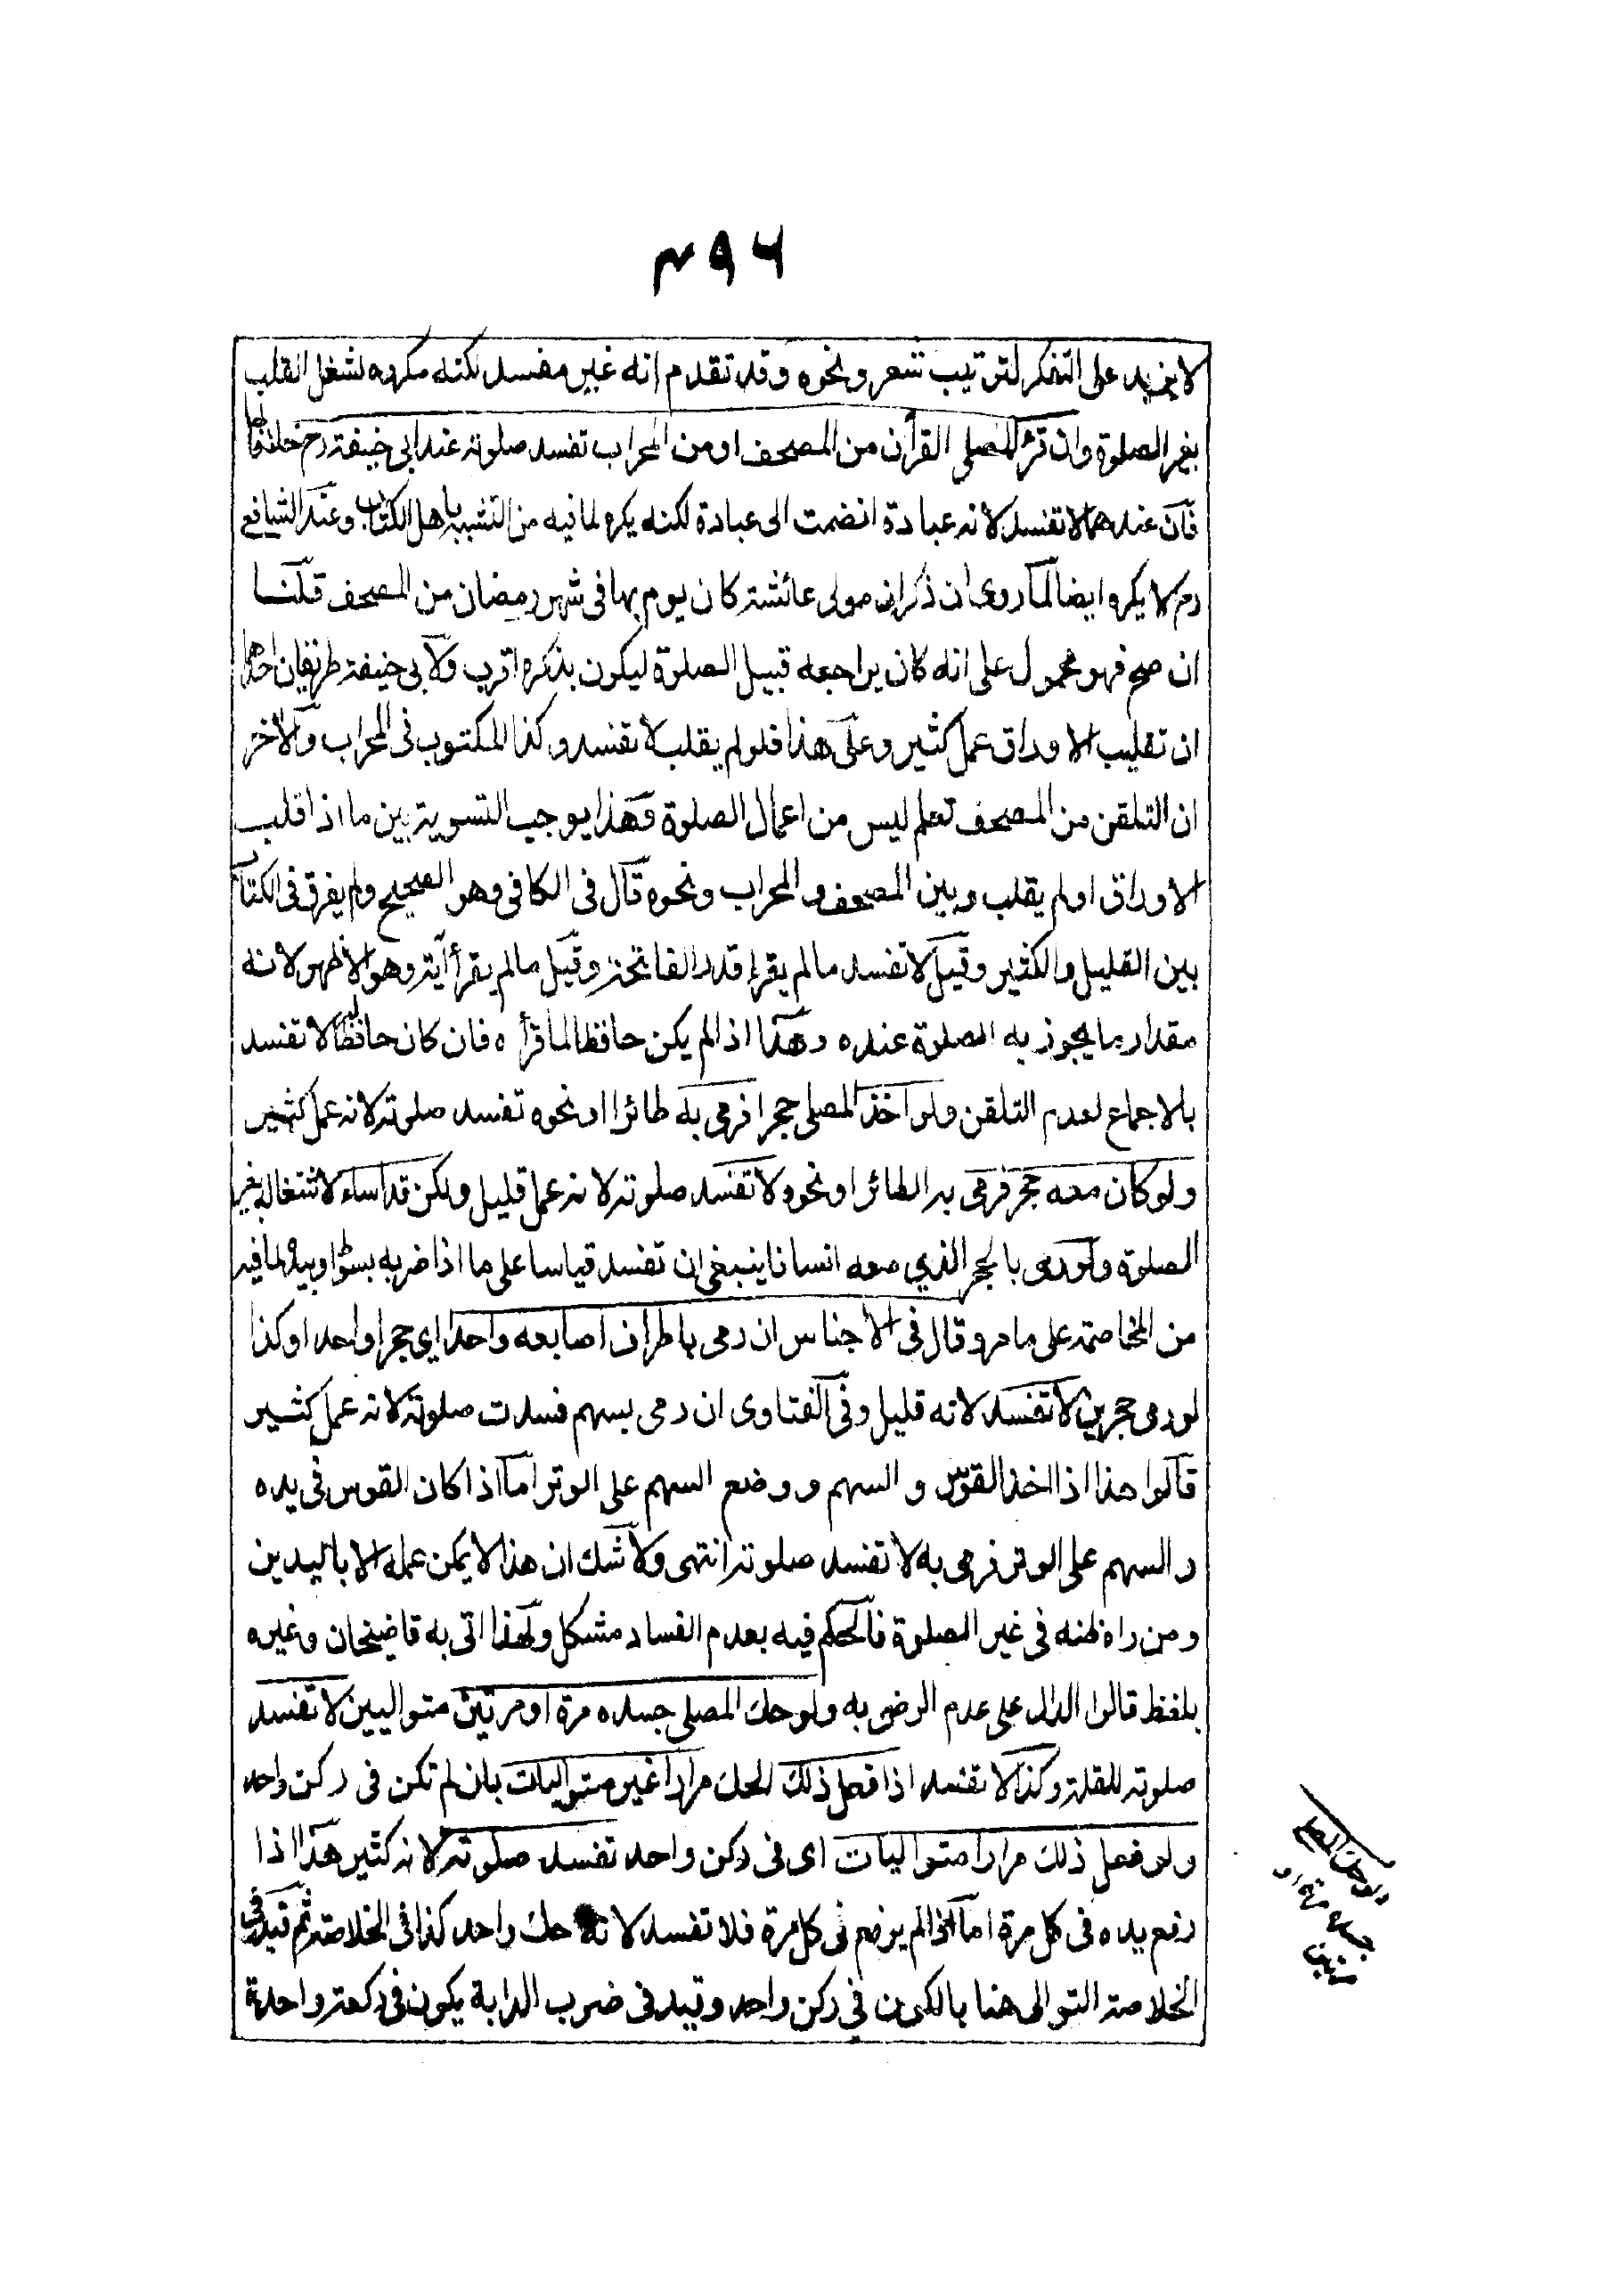 ۴۹۶
لا يزيد على التفكر لترتيب شعر ونحوه وقد تقدم انه غير مفسد لكنه مكروه لشغل القلب
بغير الصلوة وان قرأ المصلي القرأن من المصحف او من المحراب تفسد صلوته عند ابي حنيفة رح خلافا لهما
فان عندهما لا تفسد لانه عبادة انضمت الى عبادة لكنه يكره لما فيه من التشبه باهل الكتاب وعند الشافعي
رح لا يكره ايضا لما روى ان ذكران مولى عائشة كان يوم بها في شهر رمضان من المصحف قلنا
ان صح فهو محمول على انه كان يراجعه قبيل الصلوة ليكون بذكره اقرب ولابي حنيفة طريقان احدهما
ان تقليب الاوراق عمل كثير وعلى هذا فلو لم يقلب لا تفسد وكذا المكتوب في المحراب والاخر
ان التلقن من المصحف تعلم ليس من اعمال الصلوة وهذا يوجب التسوية بين ما اذا قلب
الاوراق او لم يقلب وبين المصحف والمحراب ونحوه قال في الكافي وهو الصحيح ولم يفرق في الكتاب
بين القليل والكثير وقيل لا تفسد ما لم يقرأ قدر الفاتحة وقيل ما لم يقرأ آية وهو الاظهر لانه
مقدار ما يجوز به الصلوة عنده وهذا اذا لم يكن حافظا لما قرأه فان كان حافظا له لا تفسد
بالاجماع لعدم التلقن ولو اخذ المصلي حجرا فرمى به طائرا او نحوه تفسد صلوته لانه عمل كثير
ولو كان معه حجر فرمى به الطائر او نحوه لا تفسد صلوته لانه عمل قليل ولكن قد اساء لاشتغاله بغير
الصلوة ولو رمى بالحجر الذي معه انسانا ينبغي ان تفسد قياسا على ما اذا ضربه بسوط او بيده لما فيه
من المخاصمة على ما مر وقال في الاجناس ان رمى باطراف اصابعه واحدا اي حجرا واحدا وكذا
لو رمى حجرين لا تفسد لانه قليل وفي الفتاوى ان رمى بسهم فسدت صلوته لانه عمل كثير
قالوا هذا اذا اخذ القوس والسهم ووضع السهم على الوتر اما اذا كان القوس في يده
والسهم على الوتر فرمى به لا تفسد صلوته انتهى ولا شك ان هذا لا يمكن عمله الا باليدين
ومن راه ظنه في غير الصلوة فالحكم فيه بعدم الفساد مشكل ولهذا اتى به قاضيخان وغيره
بلفظ قالوا الدال على عدم الرضى به ولو حك المصلي جسده مرة او مرتين متواليين لا تفسد
صلوته للقلة وكذا لا تفسد اذا فعل ذلك الحك مرارا غير متواليات بان لم تكن في ركن واحد
ولو فعل ذلك مرارا متواليات اى في ركن واحد تفسد صلوته لانه كثير هذا اذا
رفع يده في كل مرة اما اذا لم يرفع في كل مرة فلا تفسد لانه حك واحد كذا في الخلاصة ثم قيد في
الخلاصة التوالى هنا بالكون في ركن واحد وقيد في ضرب الدابة يكون في ركعة واحدة
ولو حك المصلي
جسده مرة او
مرتين